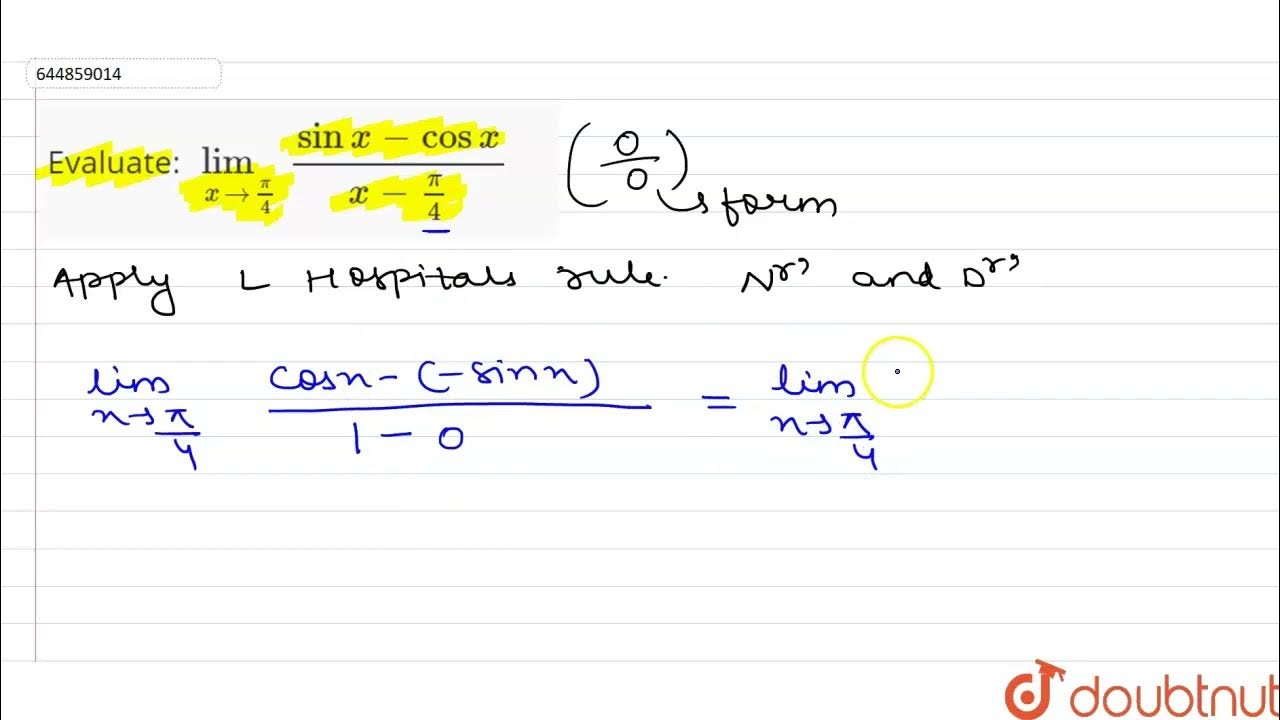 644859014
Evaluate: lim x→π/4 (sin x − cos x)/(x − π/4) (0/0) form
Apply L Hospitals rule. Nr' and Dr'
lim x→π/4 (cosx − (−sinx))/(1 − 0) = lim x→π/4
doubtnut